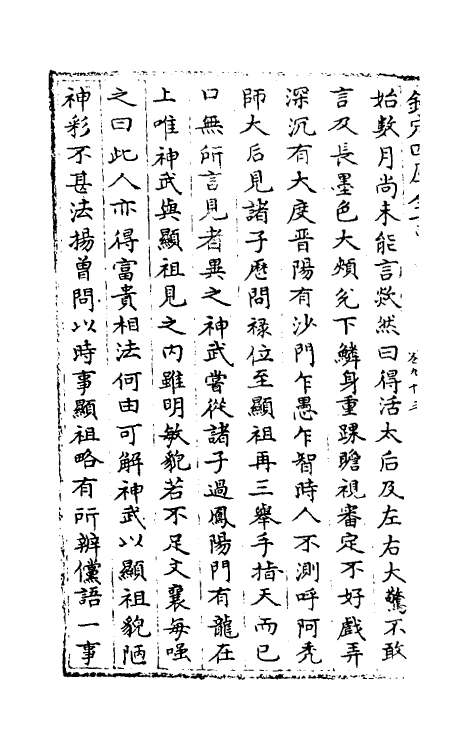 欽定四庫全書
卷九十三
始數月尚未能言欻然曰得活太后及左右大驚不敢
言及長墨色大頰兌下鱗身重踝瞻視審定不好戲弄
深沉有大度晉陽有沙門乍愚乍智時人不測呼阿秃
師太后見諸子歴問禄位至顯祖再三舉手指天而已
口無所言見者異之神武嘗從諸子過鳳陽門有龍在
上唯神武與顯祖見之内雖明敏貌若不足文襄每嗤
之曰此人亦得富貴相法何由可解神武以顯祖貌陋
神彩不甚法揚曾問以時事顯祖略有所辨儻語一事